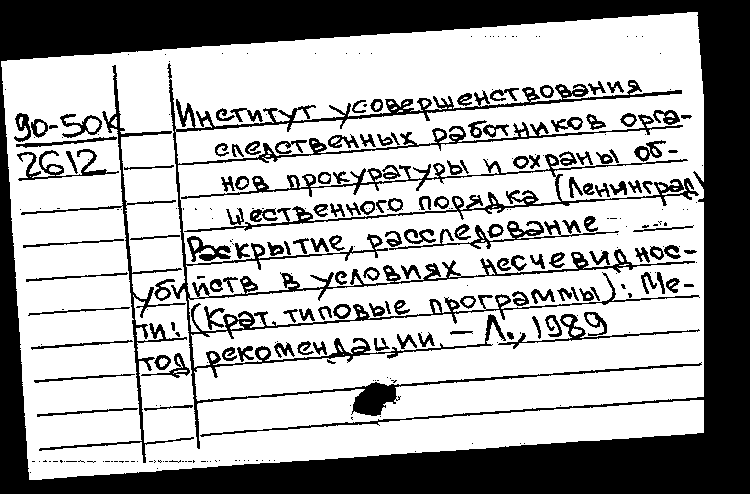 90-50К
2612
Институт усовершенствования
следственных работников орга-
нов прокуратуры и охраны об-
щественного порядка (Ленинград)
Раскрытие, расследование ...
убийств в условиях несчевиднос-
ти: (Крат. типовые программы): Ме-
тод рекомендации. – Л., 1989